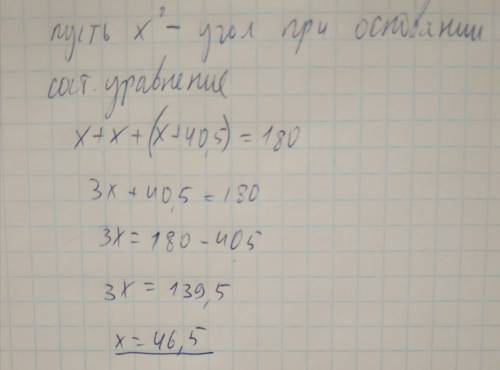 пусть x° - угол при основании
сост. уравнение
x+x+(x+40,5)=180
3x+40,5=180
3x=180-40,5
3x=139,5
x=46,5